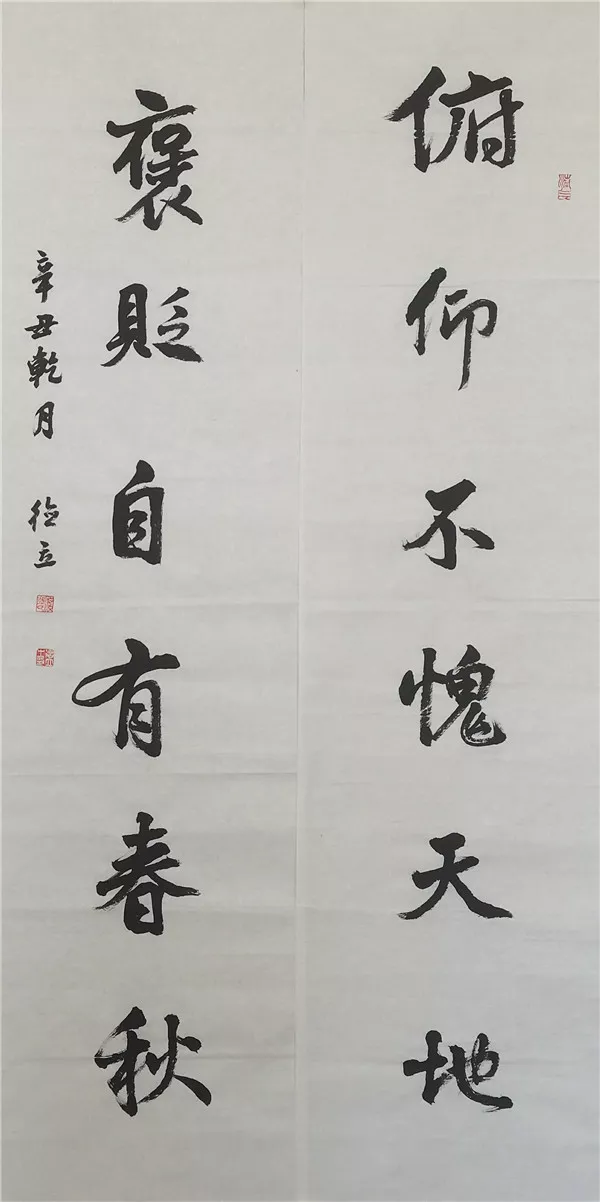 俯仰不愧天地
褒貶自有春秋
辛丑乾月
德立